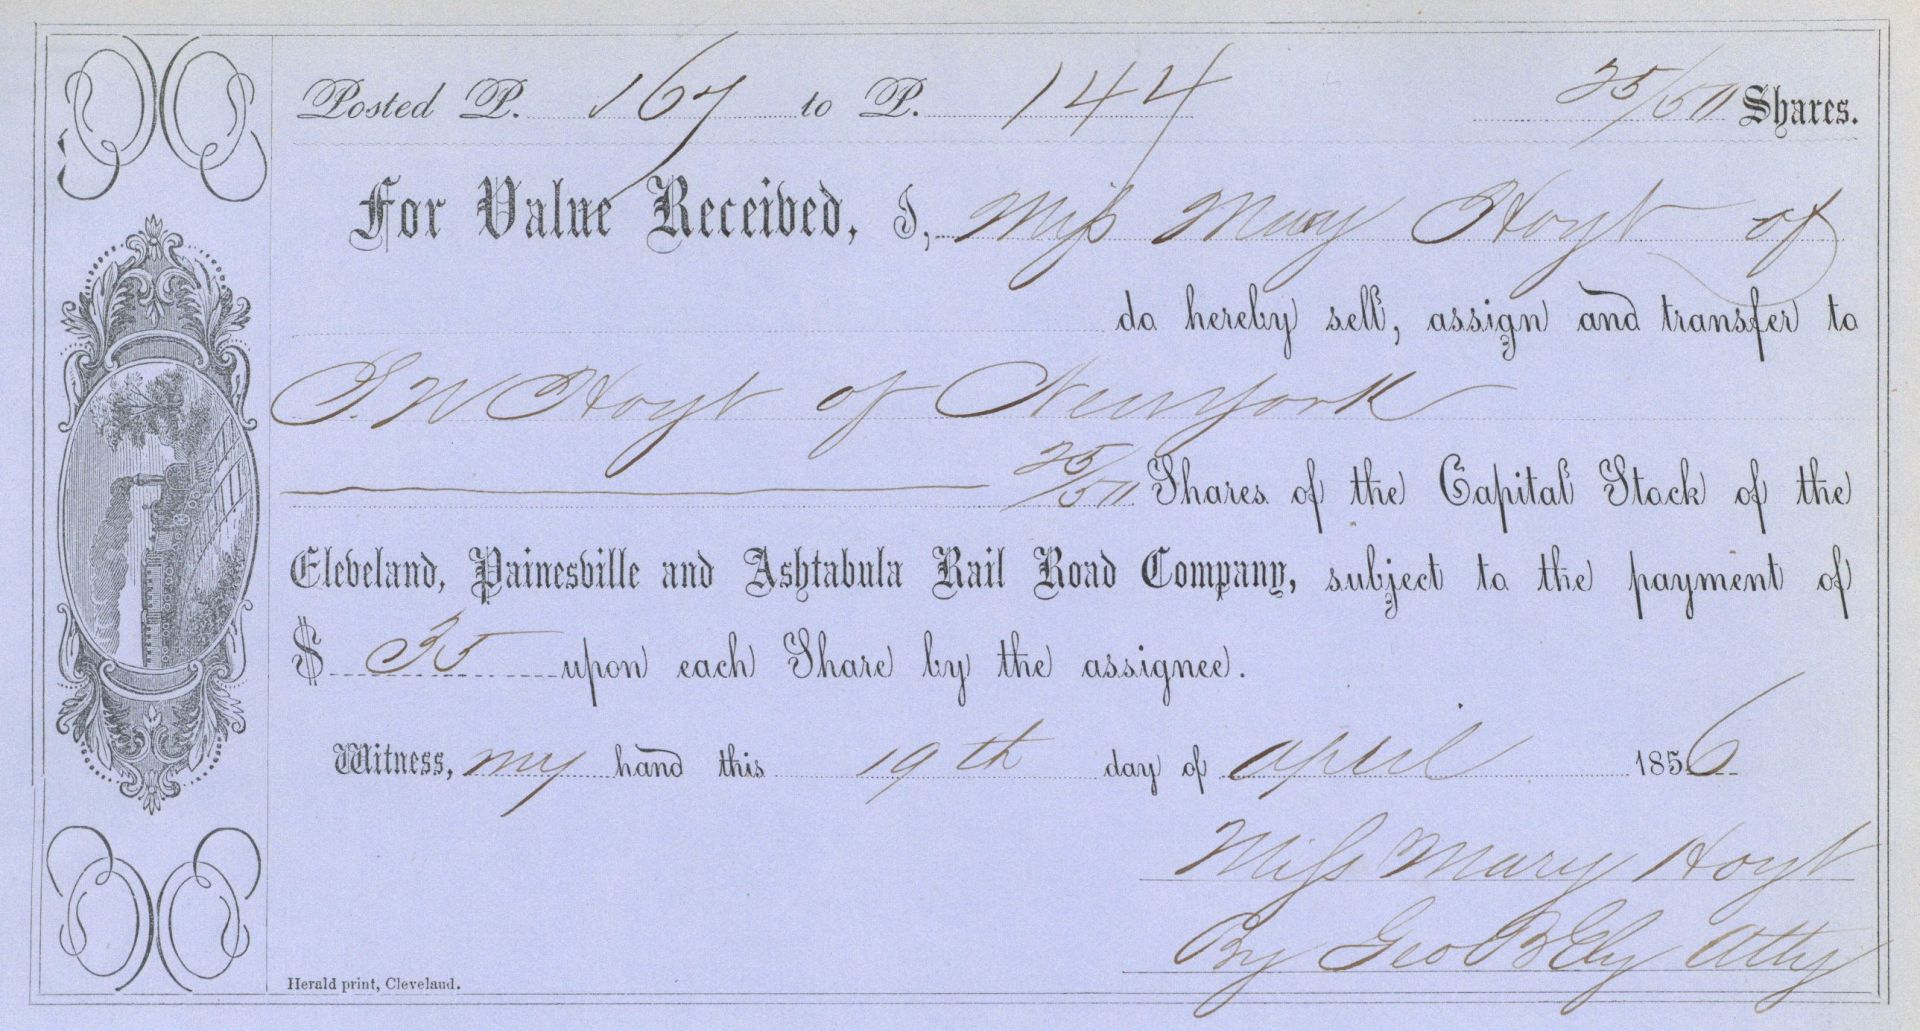 Posted P. 167 to P. 144 25/50 Shares.
For Value Received, I, Miss Mary Hoyt of
do hereby sell, assign and transfer to
J. W Hoyt of New York
25/50 Shares of the Capital Stock of the
Cleveland, Painesville and Ashtabula Rail Road Company, subject to the payment of
$ 35 upon each Share by the assignee.
Witness, my hand this 19th day of April 1856
Miss Mary Hoyt
By Geo B Ely Atty
Herald print, Cleveland.